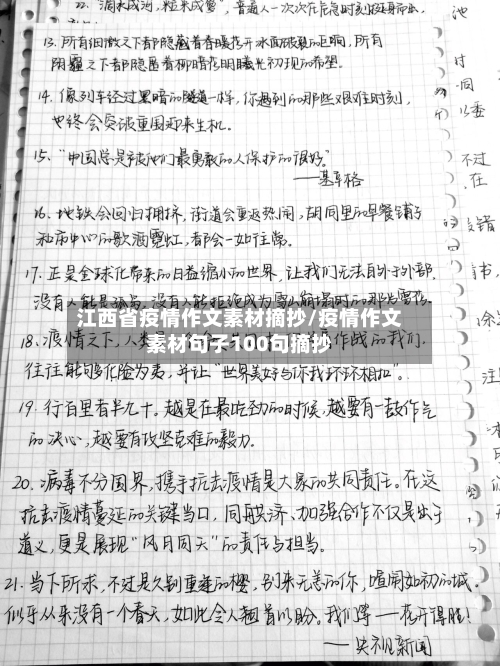 13. 所有细微之下都隐藏着春暖花开冰面破裂的巨响，所有
阴霾之下都隐藏着柳暗花明曙光初现的希望。
14. 像列车经过黑暗的隧道一样，你遇到的那些艰难时刻，
也终会突破重围迎来生机。
15. “中国总是被他们最勇敢的人保护的很好。”
——基辛格
16. 地铁会回归拥挤，街道会重返热闹，胡同里的早餐铺子
和市中心的歌酒霓虹，都会一如往常。
17. 正是全球化带来的日益缩小的世界，让我们无法自外于外部，
没有人能是孤岛，没有人能拒绝成为雪山崩塌时的那片雪花。
江西省疫情作文素材摘抄/疫情作文
素材句子100句摘抄
18. 疫情之下，人类 作战的我们，
往往能够化险为夷，并让“世界美好与你我环环相扣”。
19. 行百里者半九十，越是在最吃劲的时候，越要有一鼓作气
的决心，越要有攻坚克难的毅力。
20. 病毒不分国界，携手抗击疫情是大家的共同责任。在这
抗击疫情蔓延的关键当口，同舟共济、加强合作不仅是出于
道义，更是展现“风月同天”的责任与担当。
21. 当下所求，不过是久别重逢的樱，别来无恙的你，喧闹如初的城。
似乎从来没有一个春天，如此令人翘首以盼。我们等——花开得胜！
——央视新闻